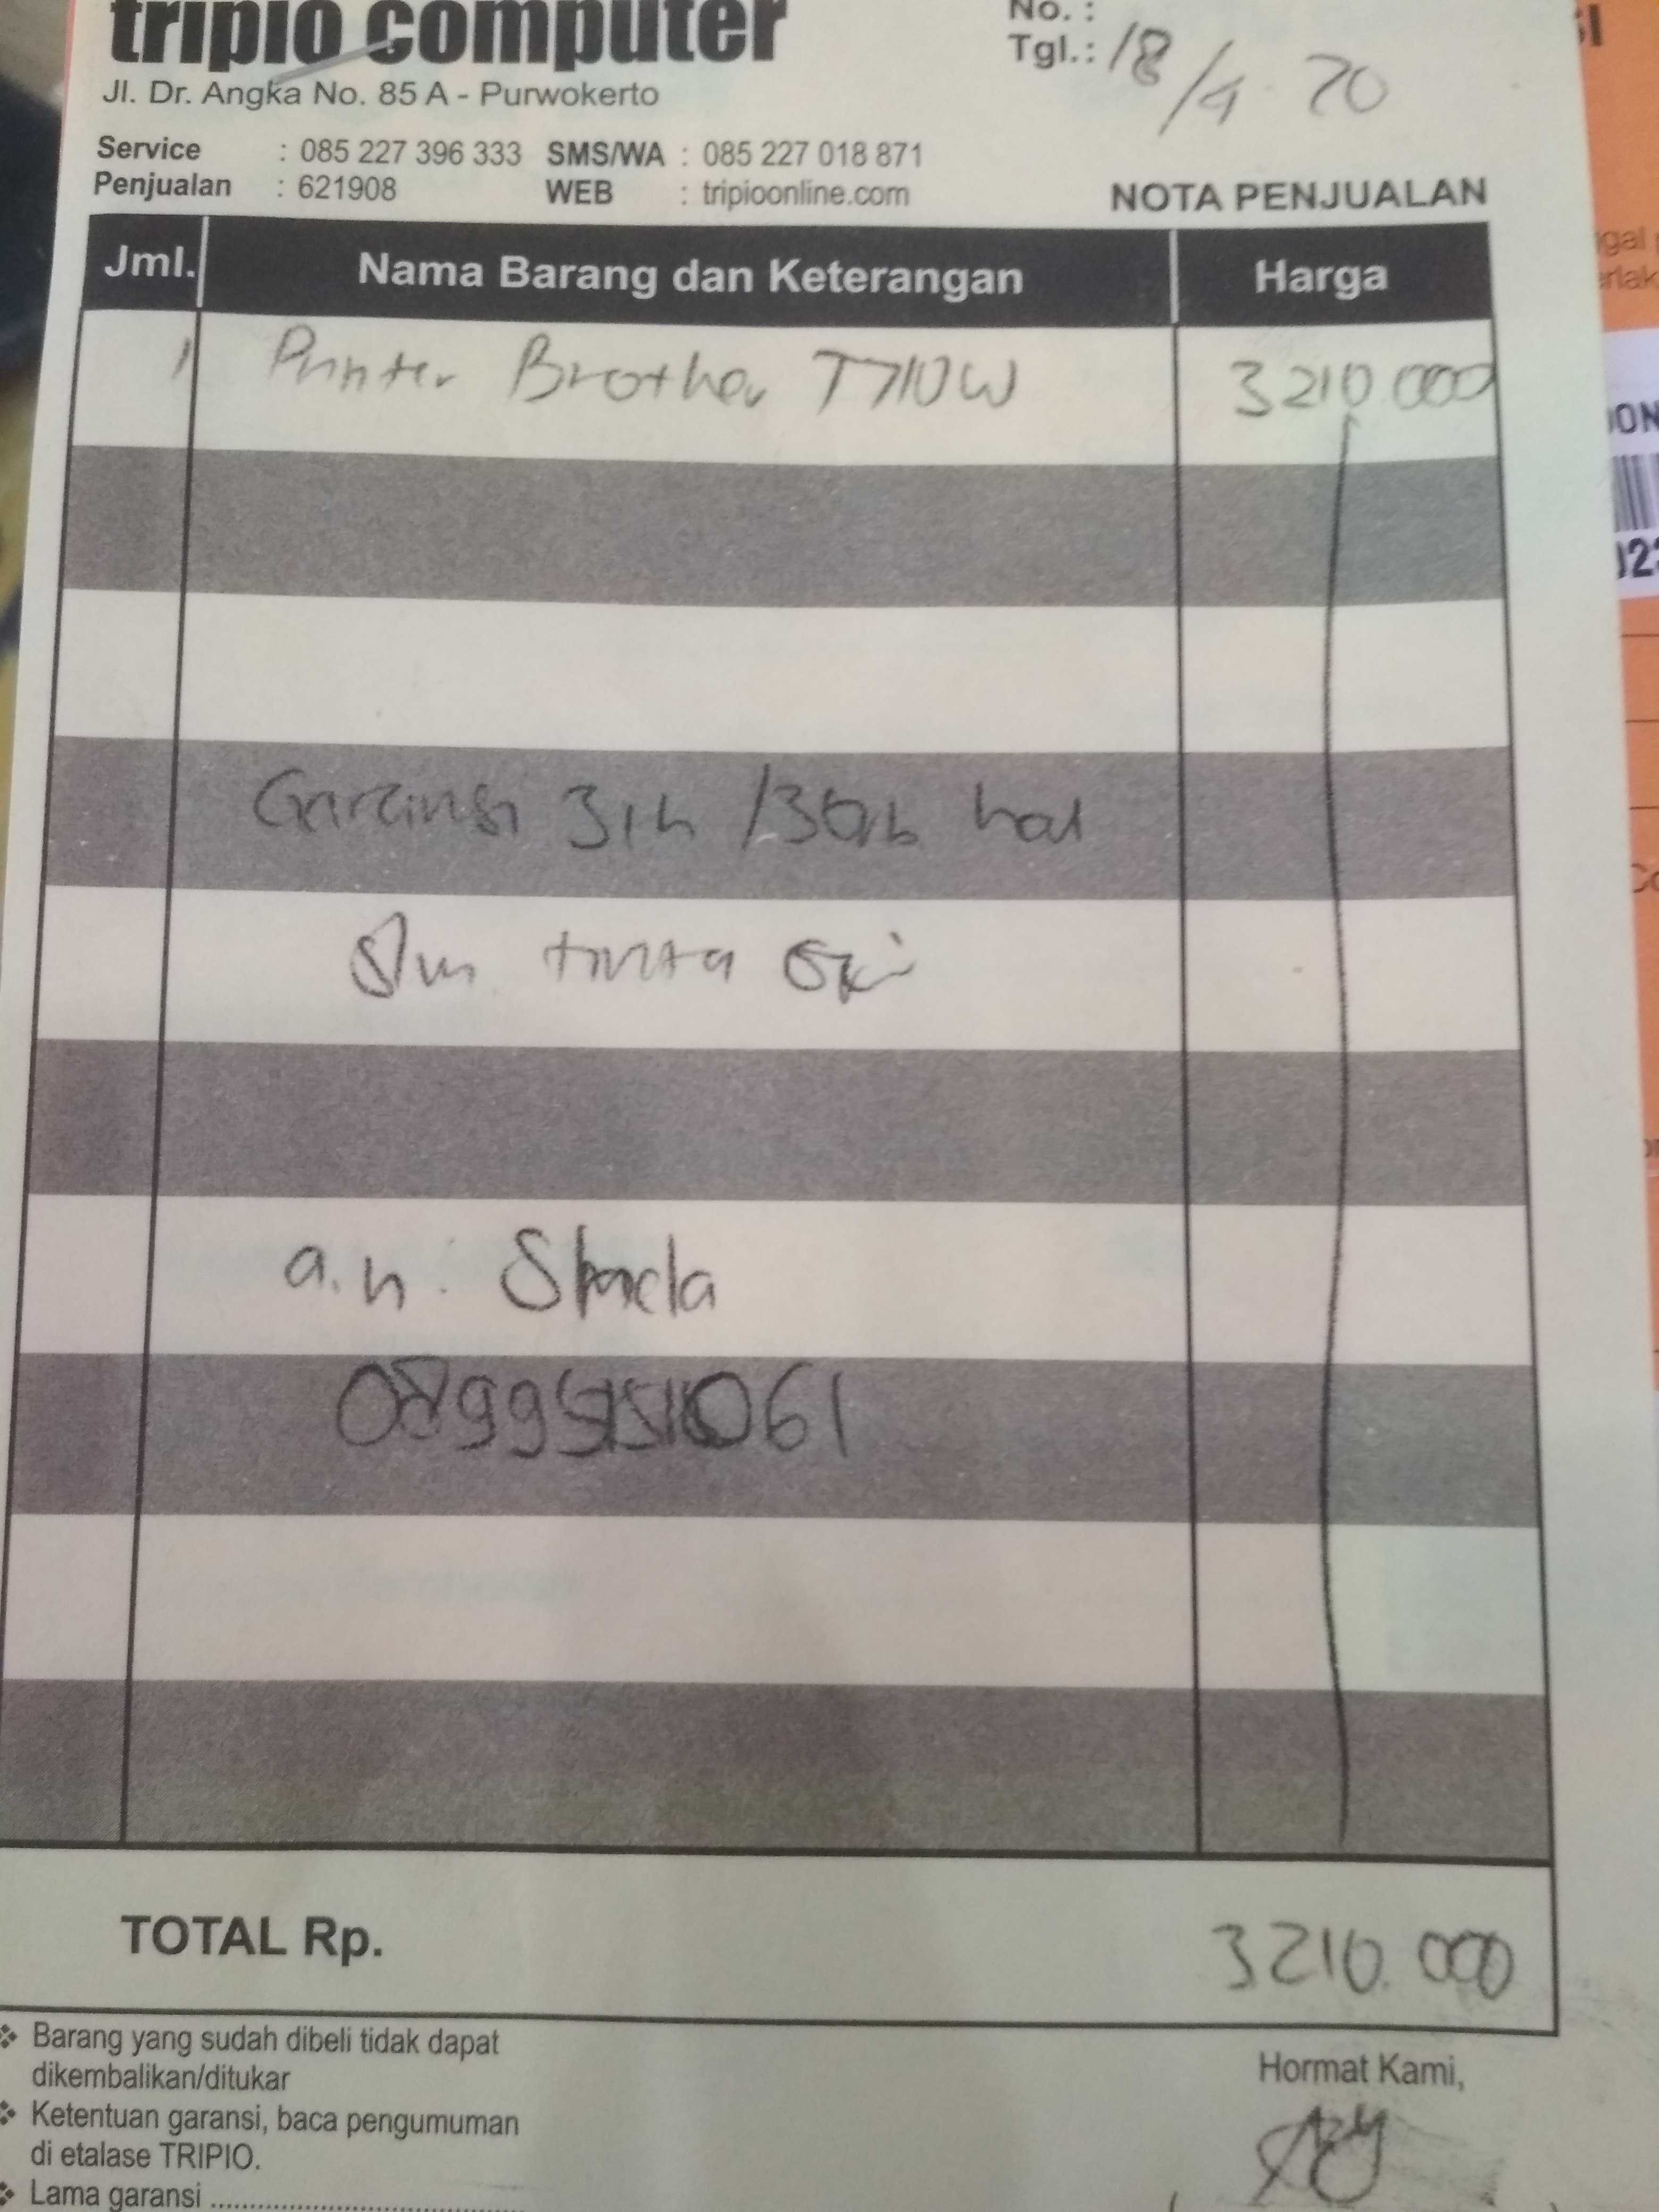 tripio computer
No. :
Tgl.: 18/4 20
Jl. Dr. Angka No. 85 A - Purwokerto
Service : 085 227 396 333 SMS/WA : 085 227 018 871
Penjualan : 621908 WEB : tripioonline.com
NOTA PENJUALAN
Jml. Nama Barang dan Keterangan Harga
1 Printer Brother T710W 3210.000
Garansi 3th /30rb hal
tinta
a.n.
TOTAL Rp. 3210.000
Barang yang sudah dibeli tidak dapat
dikembalikan/ditukar
Ketentuan garansi, baca pengumuman
di etalase TRIPIO.
Lama garansi
Hormat Kami,